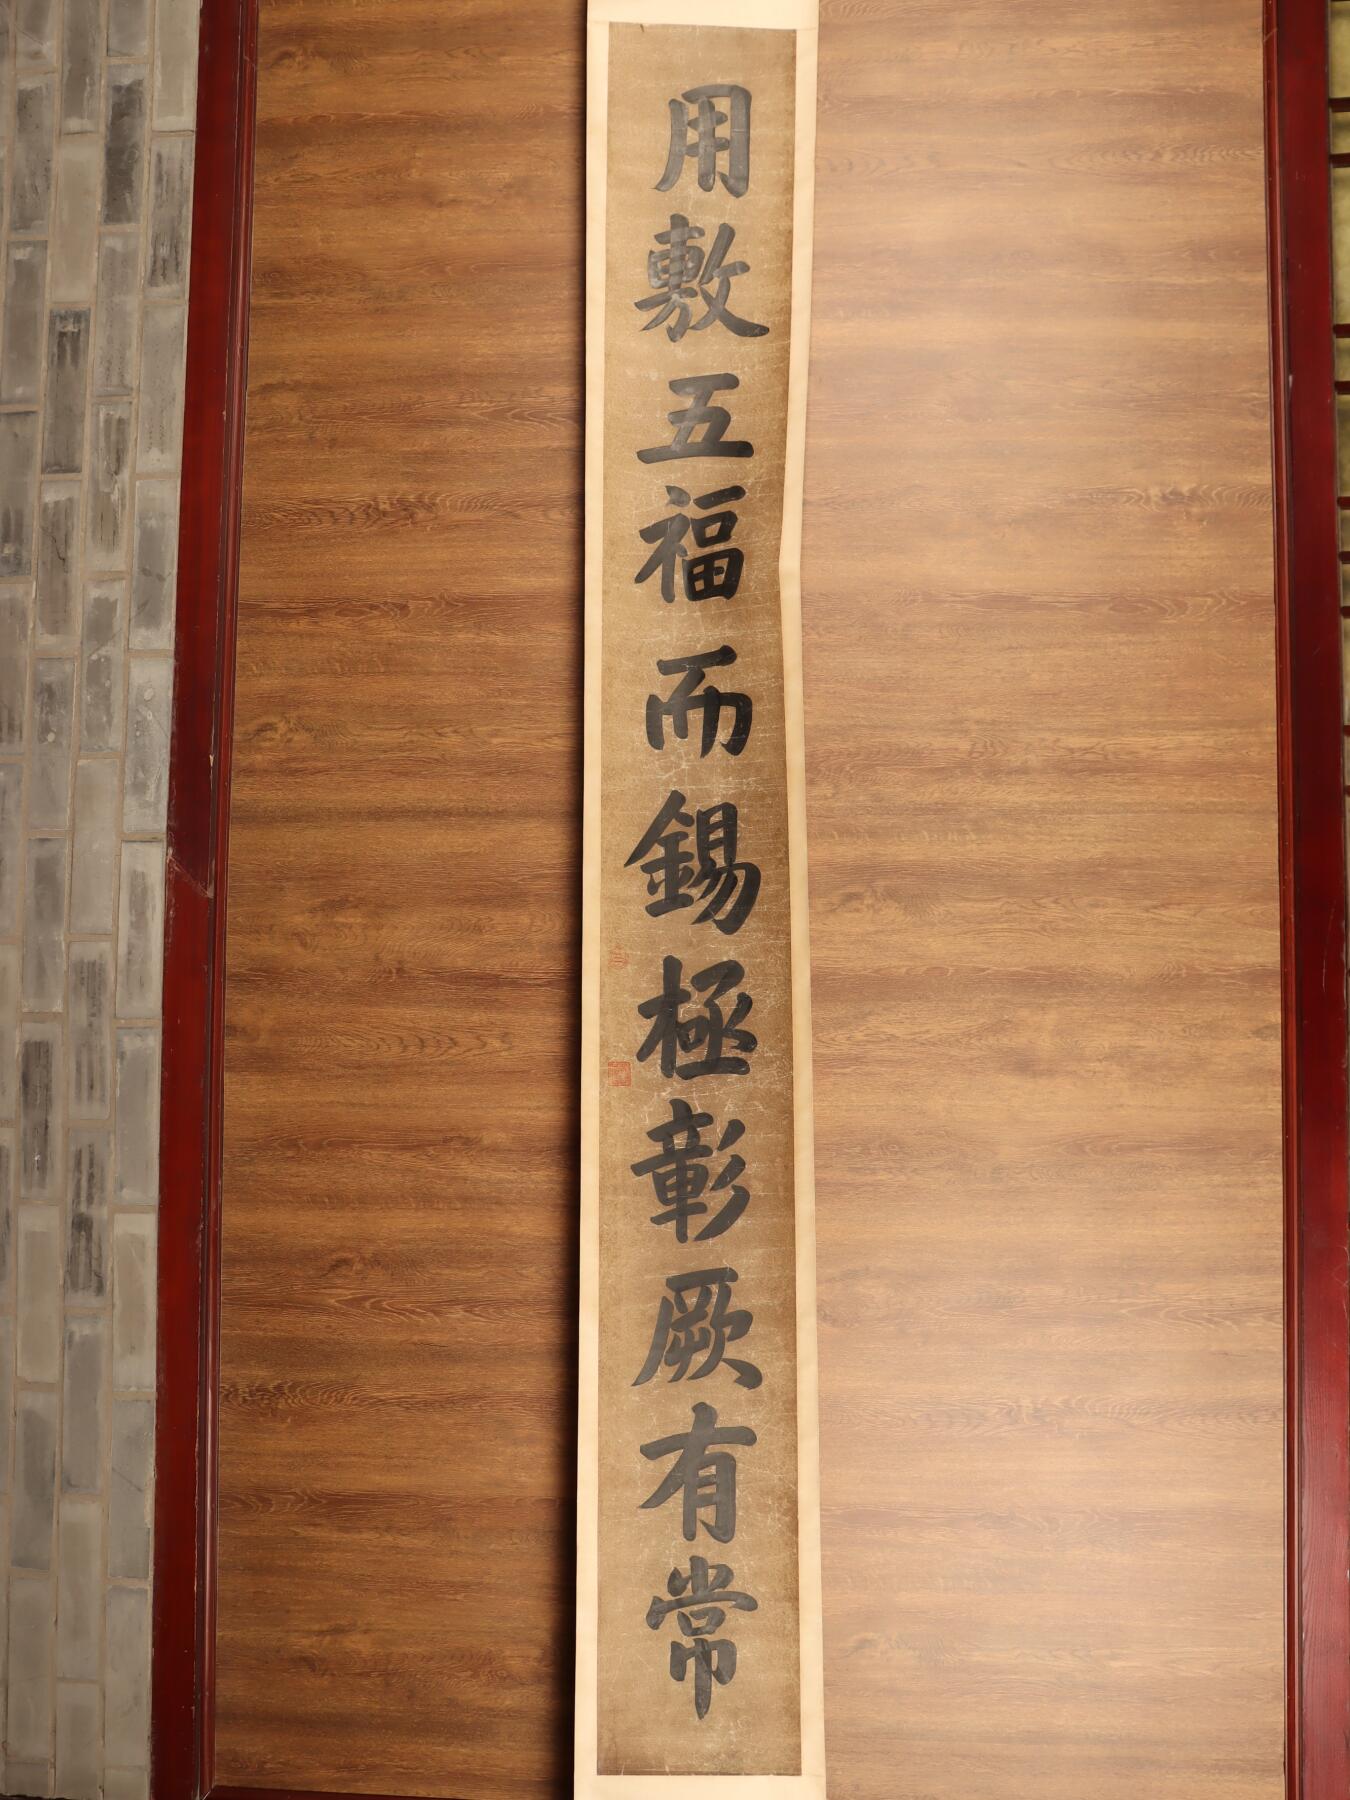 用敷五福而錫極彰厥有常